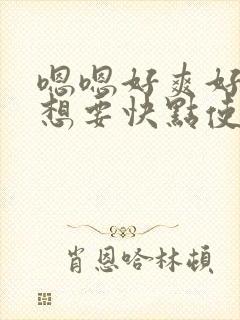 嗯嗯好爽好
想要快點使
肖恩哈林頓